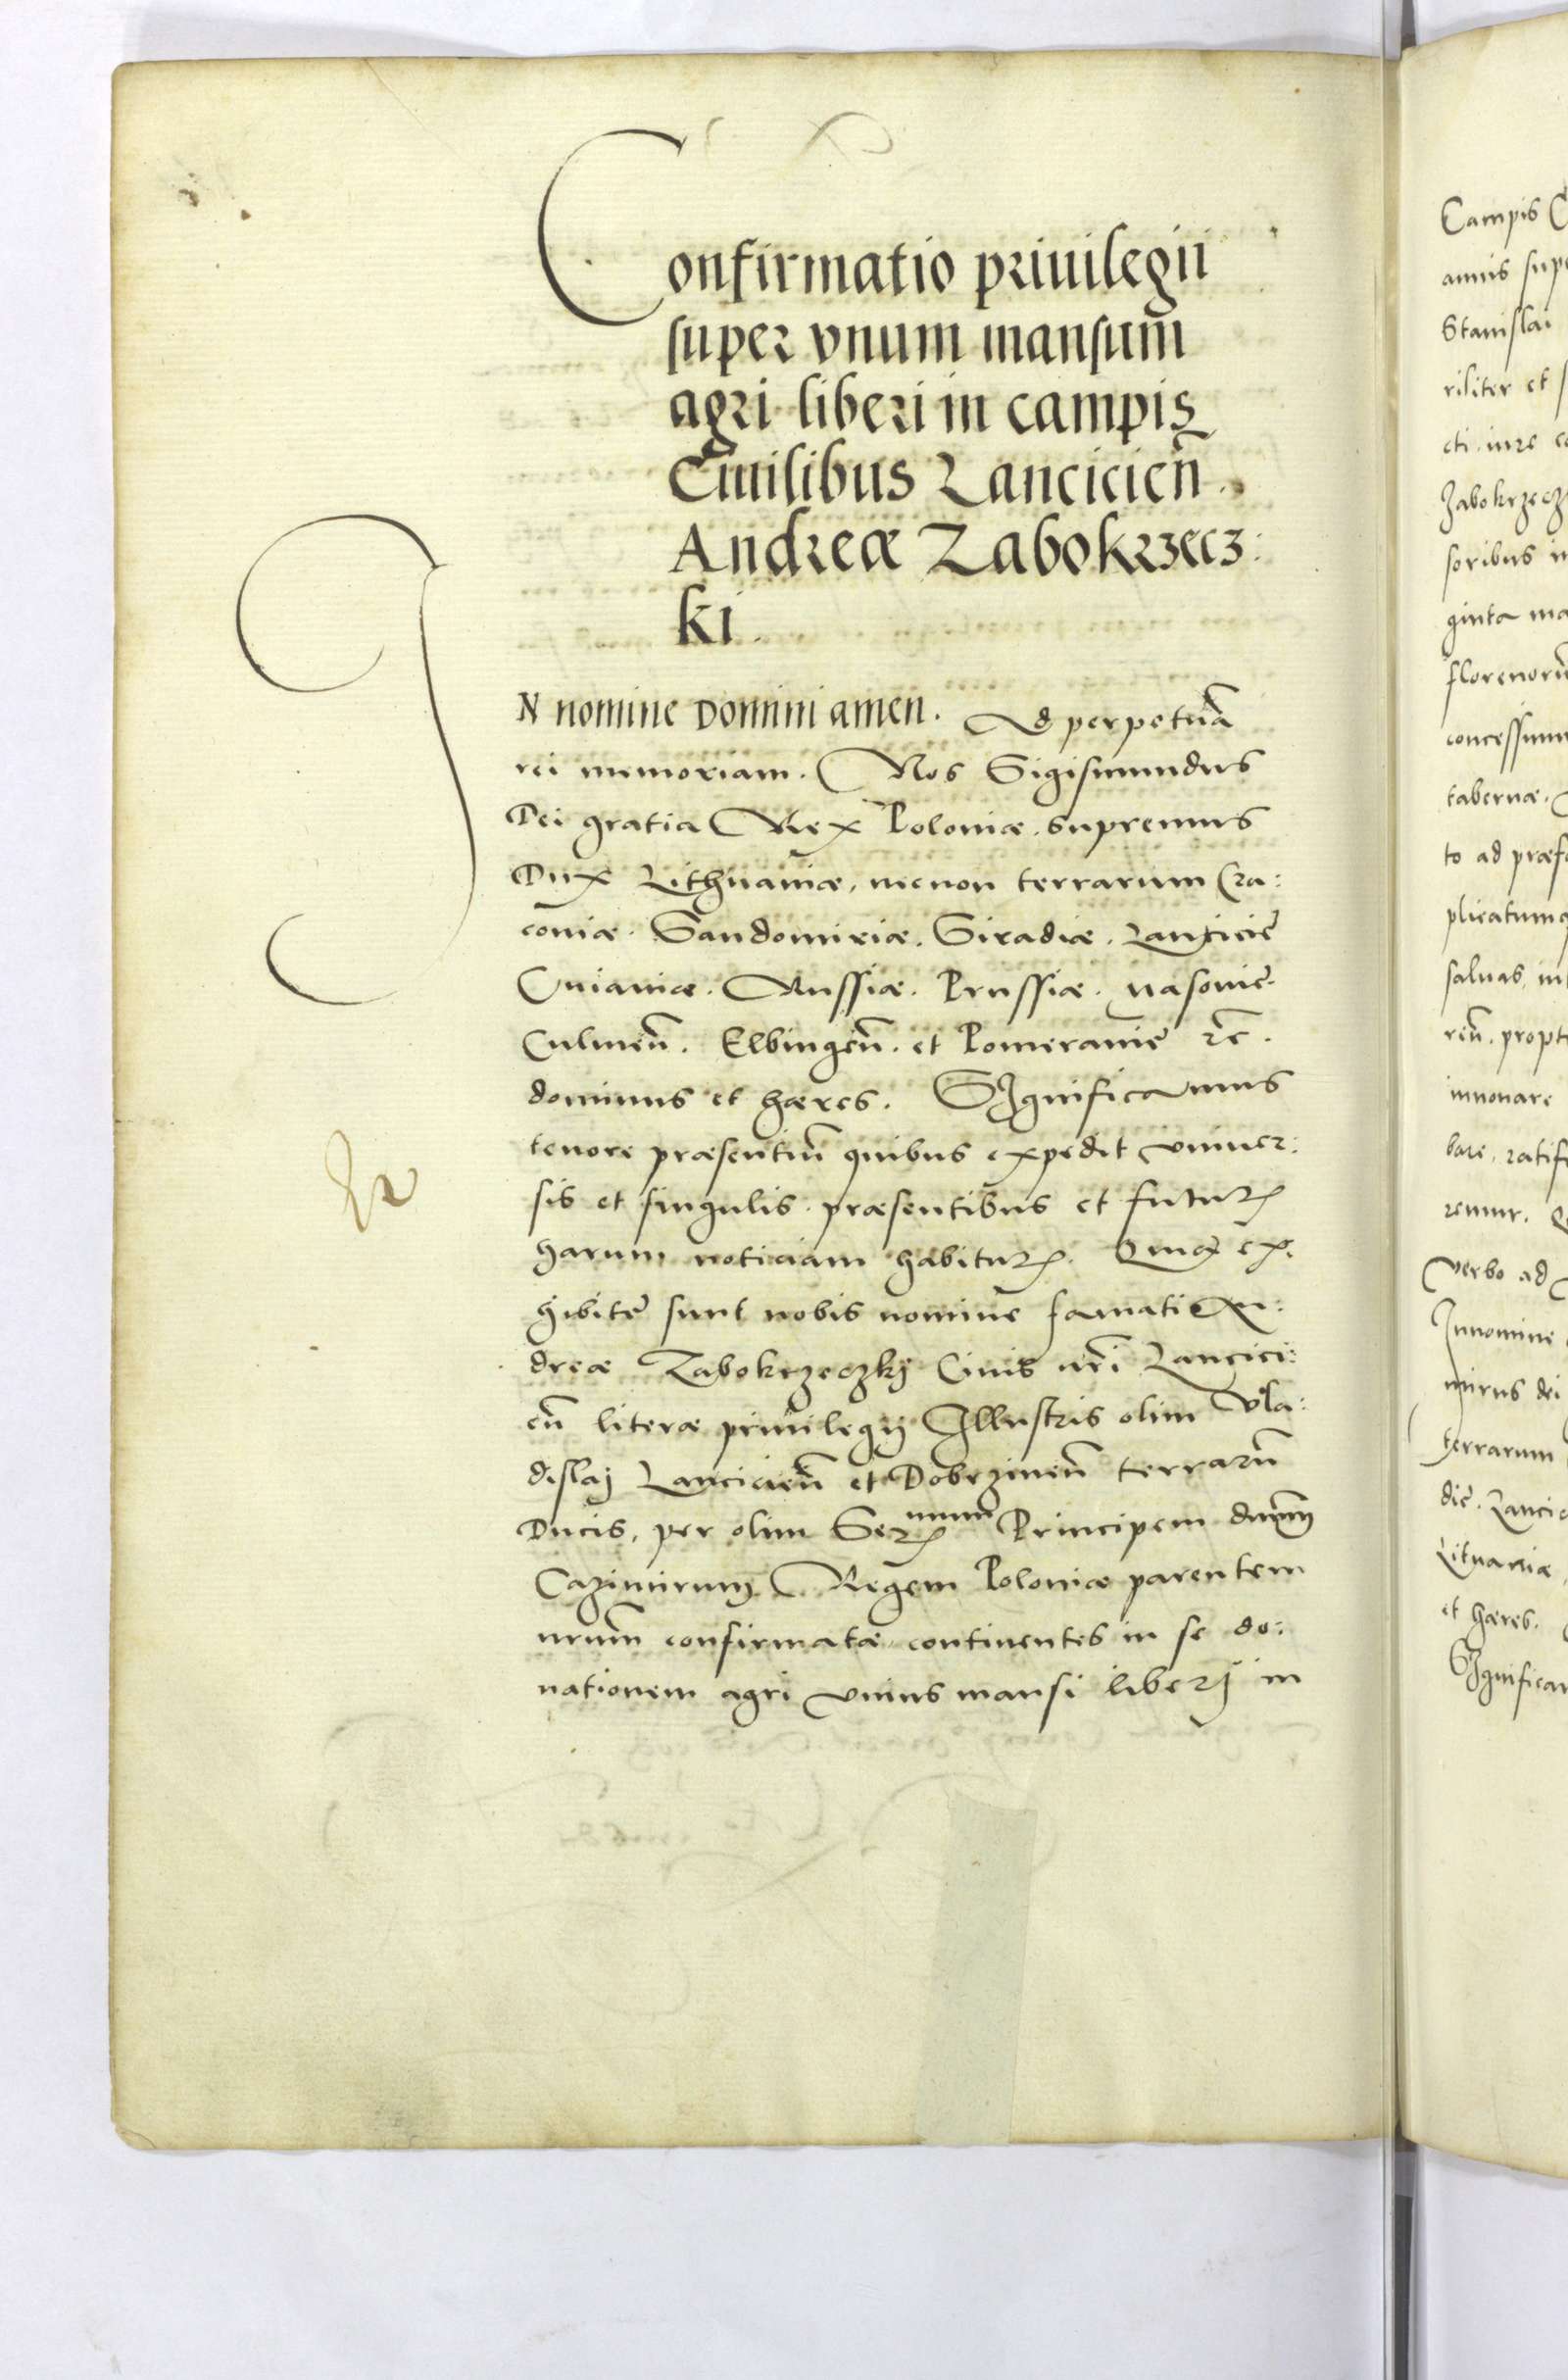 Confirmatio priuilegii
super vnum mansum
agri liberi in campis
Ciuilibus Lancicień.
Andreæ Zabokrzecz:
ki.
IN nomine Domini amen. Ad perpetuā
rei memoriam. Nos Sigismundus
Dei gratia Rex Poloniæ. supremus
Dux Lithuaniæ, necnon terrarum Cra:
couiæ. Sandomiriæ. Siradiæ. Lancicię
Cuiauiæ. Russiæ. Prussiæ. Masouię.
Culmeñ. Elbingeñ. et Pomeranię rc̄.
dominus et hæres. SIgnificamus
tenore præsentiū quibus expedit vniuer:
sis et singulis præsentibus et futurꝝ
harum noticiam habiturꝝ. Quia ex:
hibitę sunt nobis nomine famati An:
dreæ Zabokrzeczkj Ciuis nr̄i Lancici:
eñ literæ priuilegij Illustris olim Vla:
dislaj Lancicieñ et Dobrzineñ terrarū
Ducis, per olim Serꝝmum Principem dnm̄
Cazimirum Regem Poloniæ parentem
nrūm confirmatæ continentes in se do:
nationem agri vnius mansi liberj in
Campis C
annis supe
Stanislai
riliter et s
cti iure c
Zabokrzecz
soribus in
ginta ma
florenorū
concessim
tabernæ.
to ad præf
plicatumq
saluas, in
reñ. propt
innouare
bare, ratif
remur.
verbo ad
Innomine
mirus dei
terrarum
dię. Lancic
Lituaniæ
et hæres.
SIgnifica